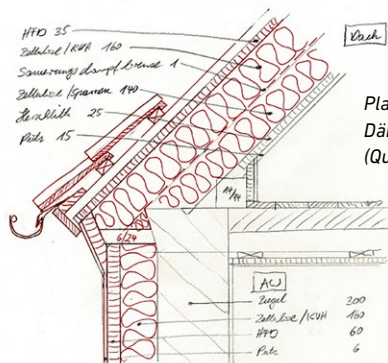 HFD 35
Zellulose/KVH 160
Sanierungsdampfbremse 1
Zellulose/Sparren 140
Heraklith 25
Putz 15
Dach
Pla
Däl
(Qu
14/14
6/24
AW
Ziegel 300
Zellulose/KVH 160
HFD 60
Putz 6